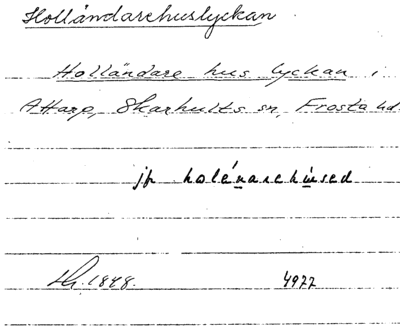 Holländarehuslyckan
Holländare hus lyckan i
Attarp, Skarhults sn, Frosta hd.
jfr holénarehused
1888. 4977